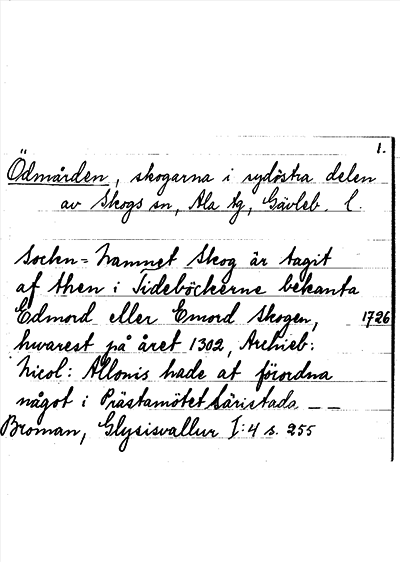 1.
Ödmården, skogarna i sydöstra delen
av Skogs sn, Ala tg, Gävleb. l.
Sockn=Namnet Skog är tagit
af then i Tideböckerne bekanta
Edmord eller Emord Skogen, 1726
hwarest på året 1302, Archieb:
Nicol: Allonis hade at förordna
något i Prästamötet häristada _ _
Broman, Glysisvallur I:4 s. 255